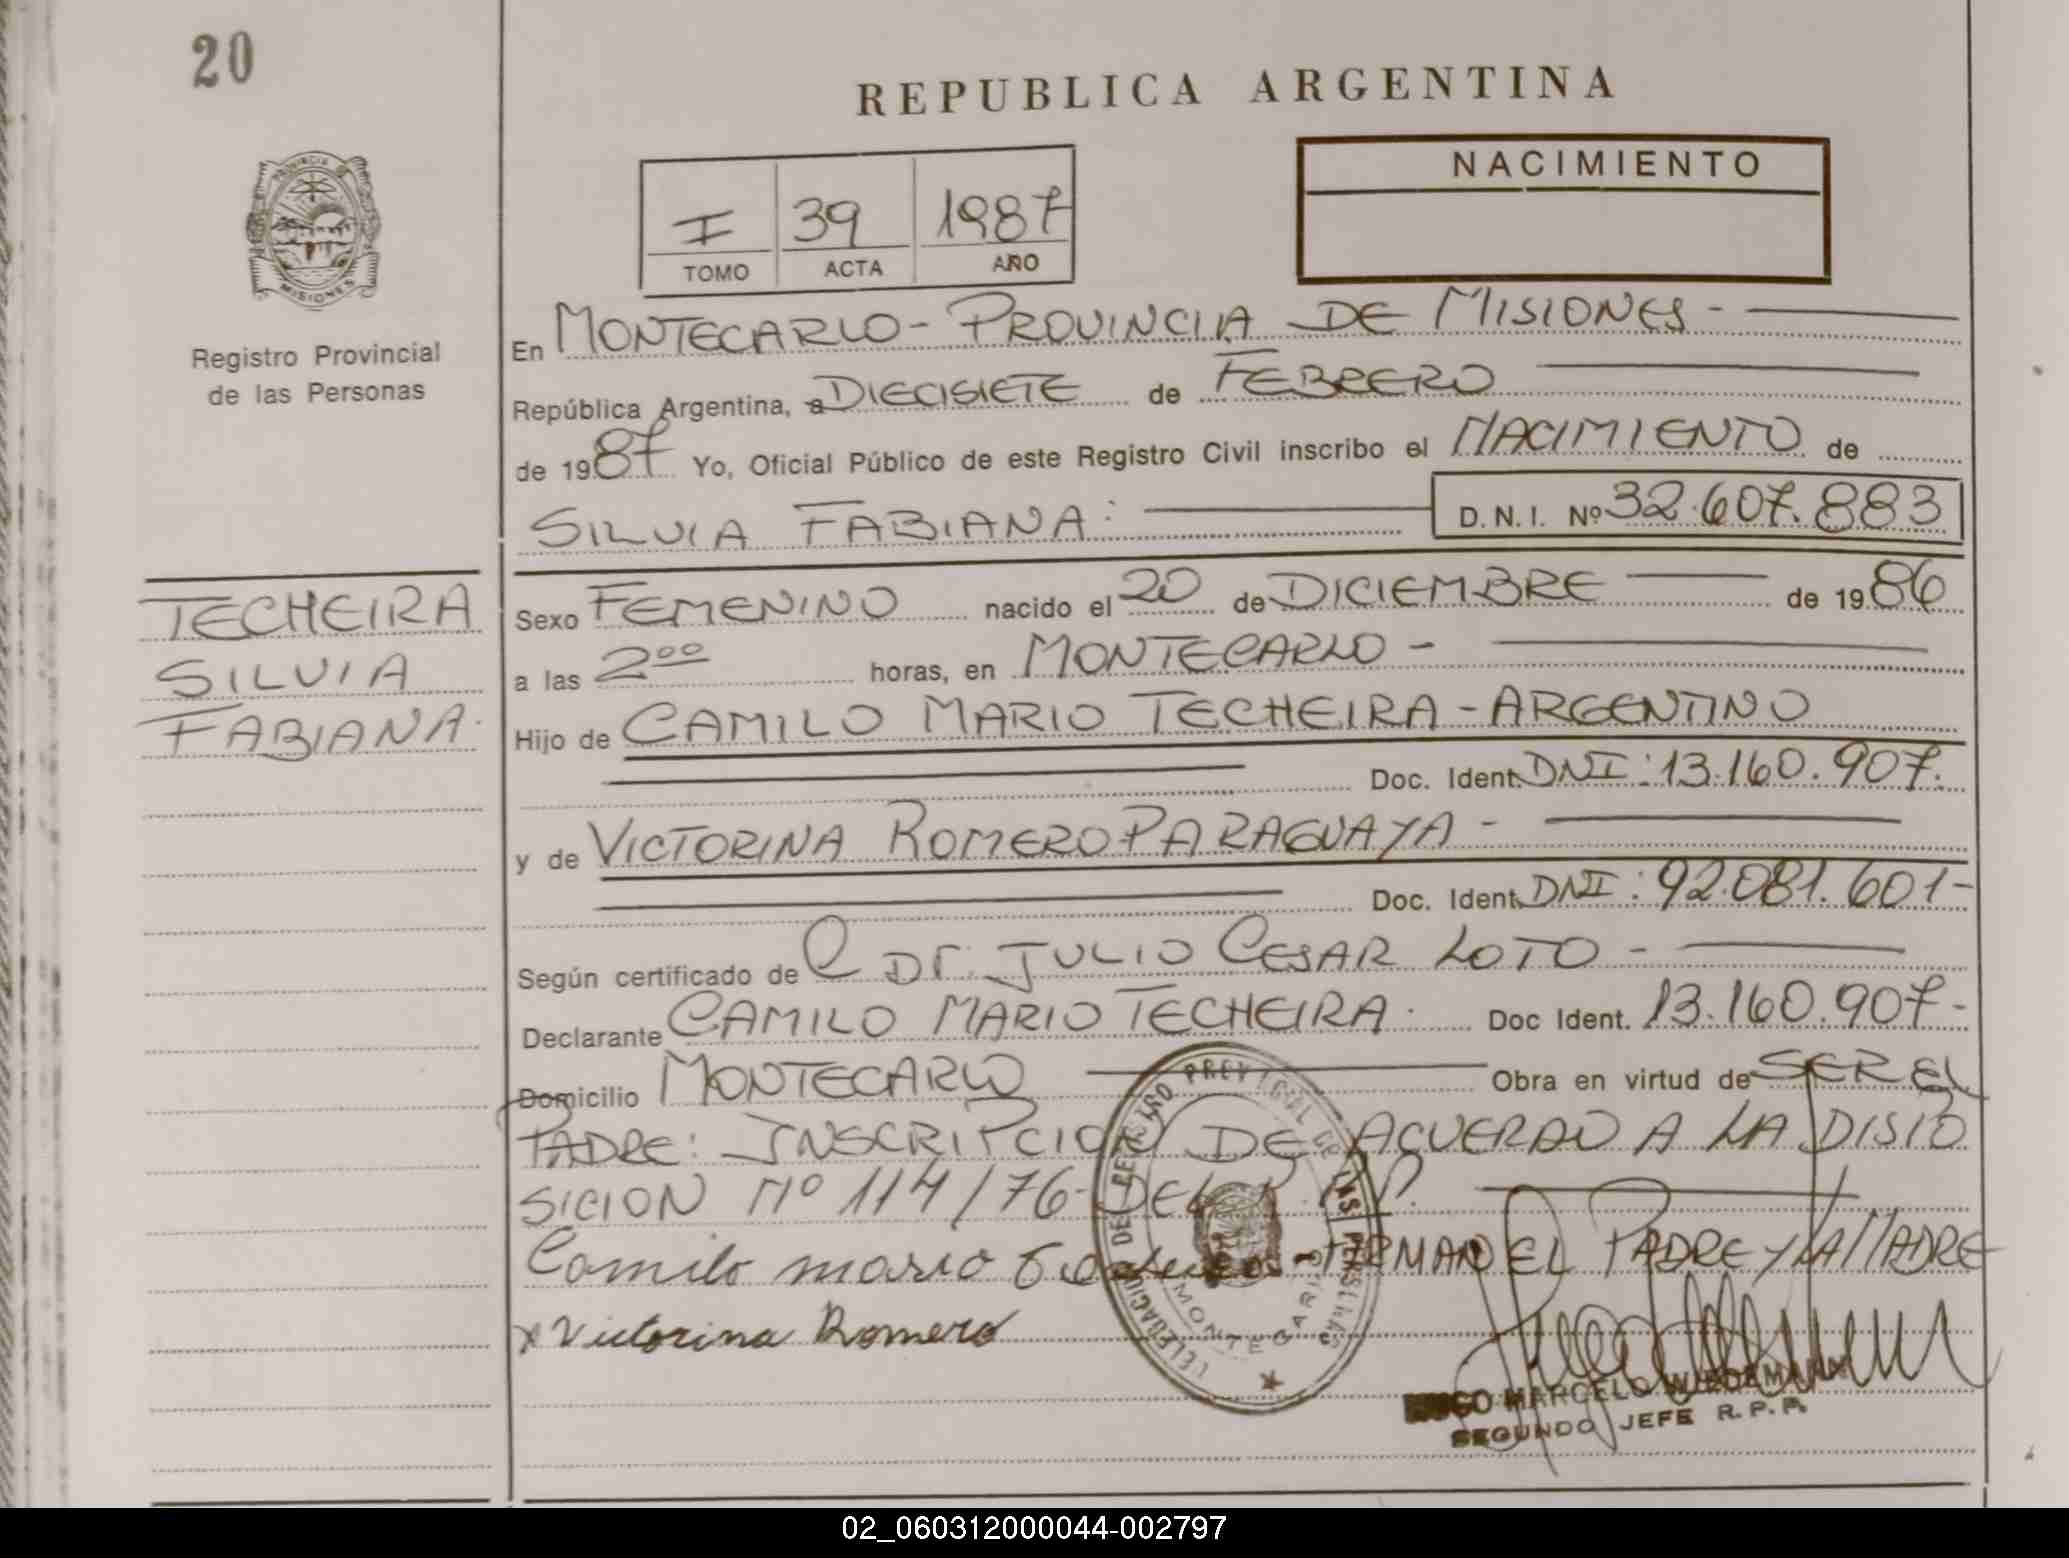 20
REPUBLICA ARGENTINA
PROVINCIA DE
MISIONES
Registro Provincial
de las Personas
NACIMIENTO
I 39 1987
TOMO ACTA AÑO
En MONTECARLO - PROVINCIA DE MISIONES -
República Argentina, a DIECISIETE de FEBRERO
de 1987 Yo, Oficial Público de este Registro Civil inscribo el NACIMIENTO de
SILVIA FABIANA: D.N.I. Nº 32.607.883
TECHEIRA
SILVIA
FABIANA.
Sexo FEMENINO nacido el 20 de DICIEMBRE de 1986
a las 2⁰⁰ horas, en MONTECARLO -
Hijo de CAMILO MARIO TECHEIRA - ARGENTINO
Doc. Ident. DNI: 13.160.907.
y de VICTORINA ROMERO PARAGUAYA -
Doc. Ident. DNI: 92.081.601-
Según certificado de Dr. JULIO CESAR LOTO -
Declarante CAMILO MARIO TECHEIRA. Doc Ident. 13.160.907-
Domicilio MONTECARLO Obra en virtud de SER EL
PADRE: INSCRIPCION DE ACUERDO A LA DISIO
SICION Nº 114/76- DEL R.P.P.
Camilo mario - FIRMAN EL PADRE Y LA MADRE
x Victorina Romero
DELEGACION DEL REGISTRO PROVINCIAL DE LAS PERSONAS
MONTECARLO
HUGO MARCELO
SEGUNDO JEFE R.P.P.
02_060312000044-002797